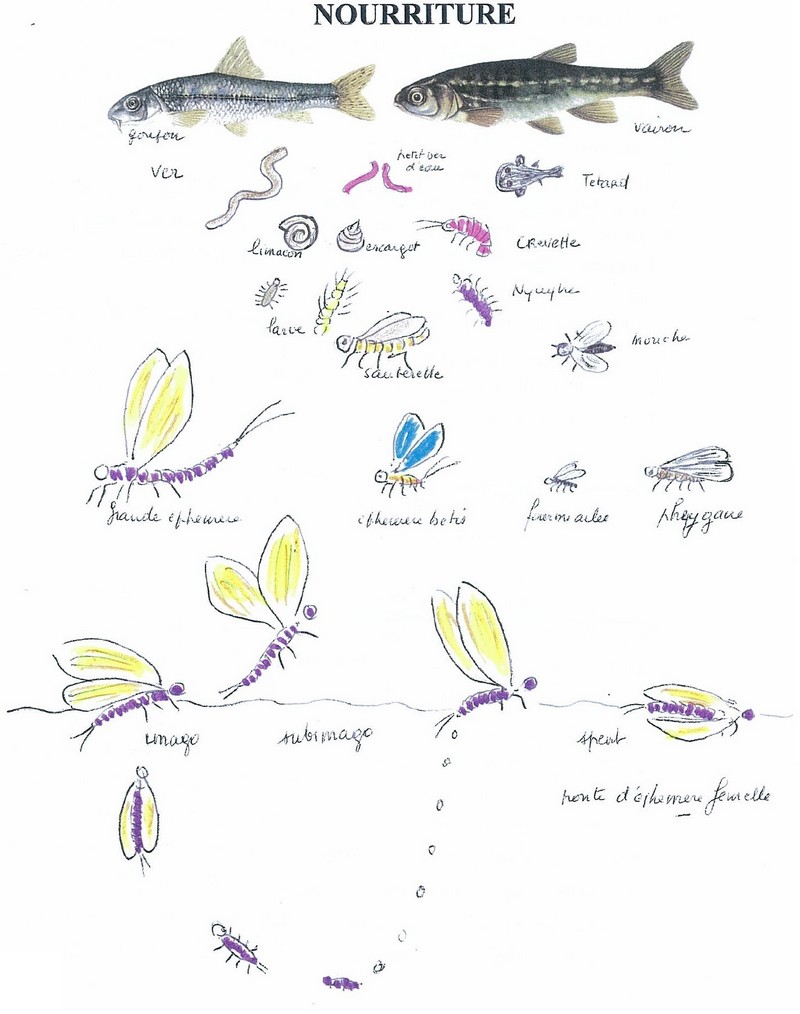 NOURRITURE
goujon
vairon
ver
petit ver
d'eau
Tetard
limacon
escargot
crevette
larve
Nymphe
sauterelle
mouche
grande éphemere
éphemere betis
fourmi ailée
phrygane
imago
subimago
spent
ponte d'éphemere femelle